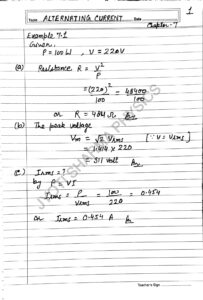 1
Name ALTERNATING CURRENT Date
Chapter-7
Example 7.1
Given,
P = 100 W, V = 220V
(a) Resistance R = V²/P
= (220)²/100 = 48400/100
or R = 484 Ω Ans
(b) The peak voltage
Vm = √2 Vrms [∵ V = Vrms]
= 1.414 × 220
= 311 volt Ans
(c) Irms = ?
by P = VI
Irms = P/Vrms = 100/220 = 0.454
or Irms = 0.454 A Ans
JYOTI SHARMA PHYSICS
Teacher's Sign